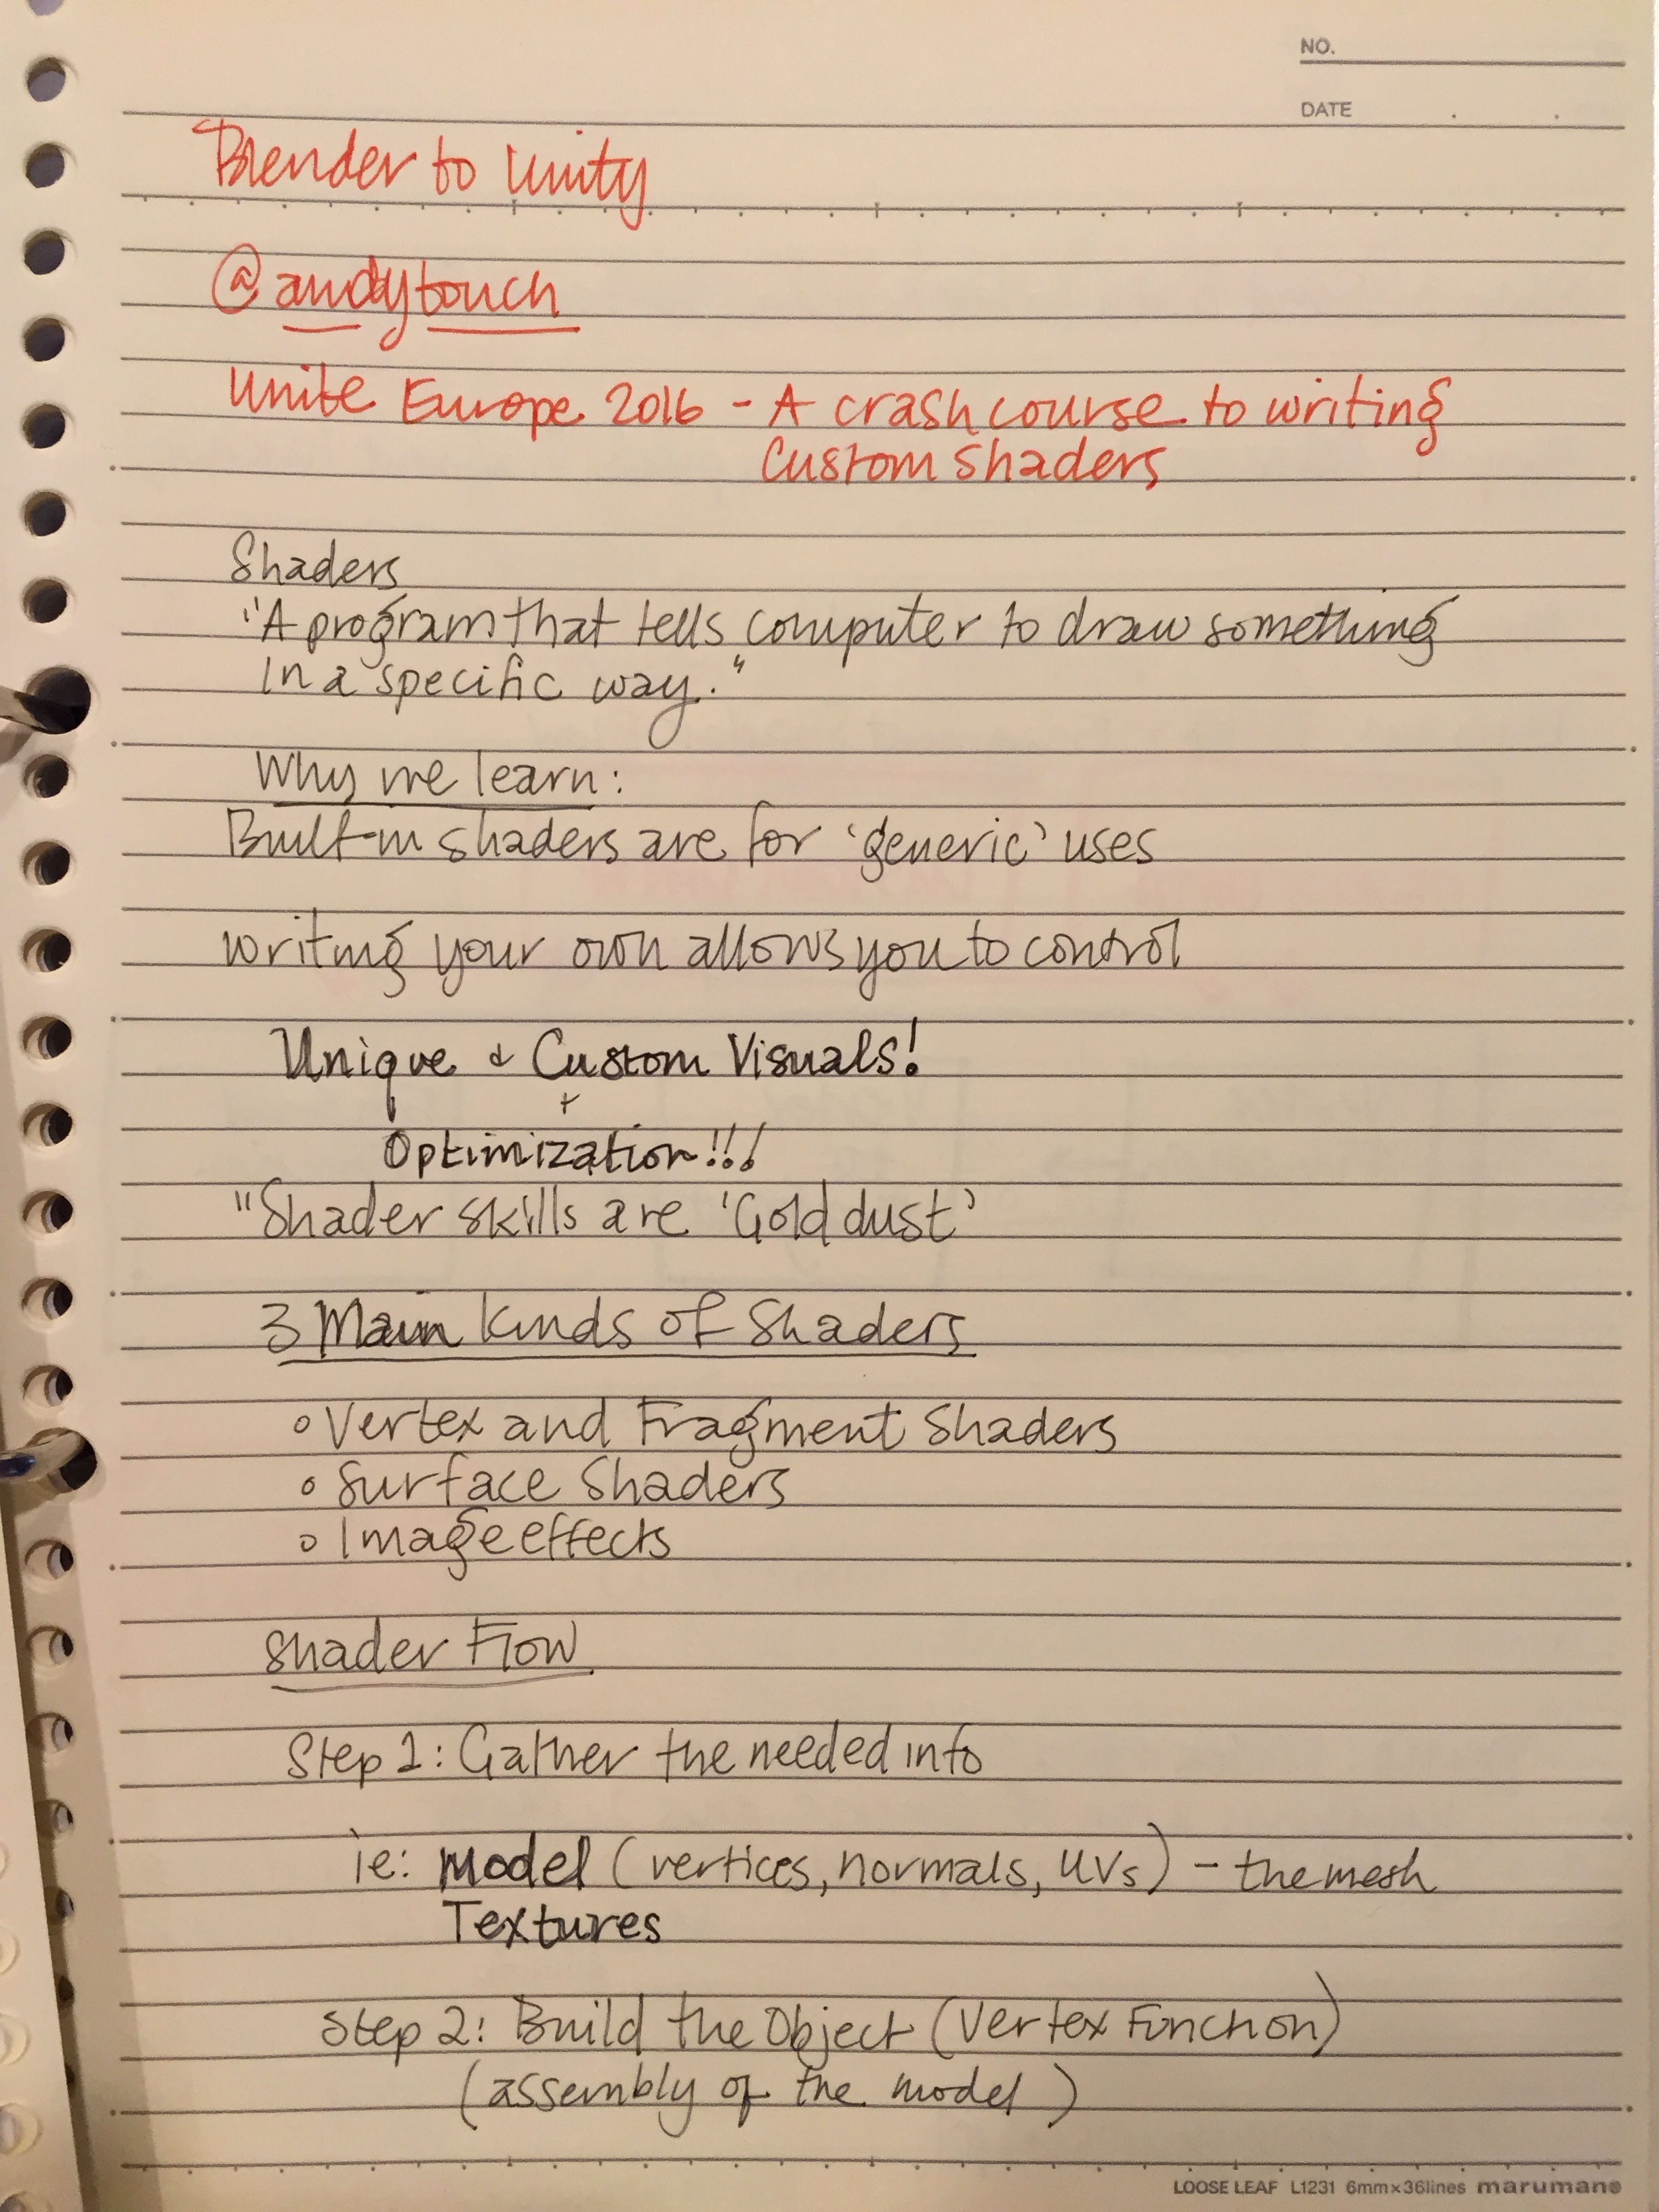 NO.
DATE
Blender to Unity
@andytouch
Unite Europe 2016 - A crash course to writing
Custom Shaders
Shaders
"A program that tells computer to draw something
in a specific way."
Why we learn:
Built-in shaders are for 'generic' uses
writing your own allows you to control
Unique & Custom Visuals!
+
Optimization!!!
"Shader skills are 'Gold dust'
3 Main kinds of Shaders
◦ Vertex and Fragment Shaders
◦ Surface Shaders
◦ Image effects
Shader Flow
Step 1: Gather the needed info
ie: Model (vertices, normals, UVs) - the mesh
Textures
Step 2: Build the Object (Vertex Function)
(assembly of the model)
LOOSE LEAF L1231 6mm×36lines marumano